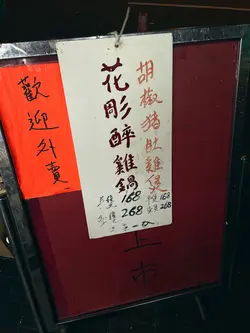 胡椒猪肚雞煲
168
268
花彫醉雞鍋
168
268
上市
歡迎外賣